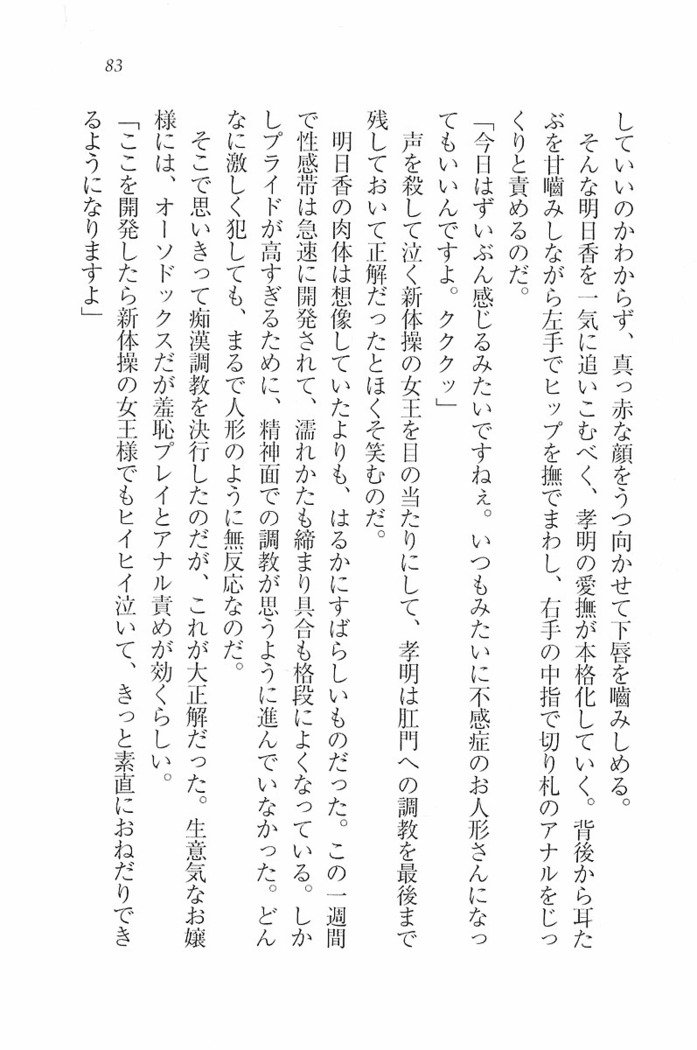 83
していいのかわからず、真っ赤な顔をうつ向かせて下唇を嚙みしめる。
そんな明日香を一気に追いこむべく、孝明の愛撫が本格化していく。背後から耳た
ぶを甘嚙みしながら左手でヒップを撫でまわし、右手の中指で切り札のアナルをじっ
くりと責めるのだ。
「今日はずいぶん感じるみたいですねぇ。いつもみたいに不感症のお人形さんになっ
てもいいんですよ。クククッ」
声を殺して泣く新体操の女王を目の当たりにして、孝明は肛門への調教を最後まで
残しておいて正解だったとほくそ笑むのだ。
明日香の肉体は想像していたよりも、はるかにすばらしいものだった。この一週間
で性感帯は急速に開発されて、濡れかたも締まり具合も格段によくなっている。しか
しプライドが高すぎるために、精神面での調教が思うように進んでいなかった。どん
なに激しく犯しても、まるで人形のように無反応なのだ。
そこで思いきって痴漢調教を決行したのだが、これが大正解だった。生意気なお嬢
様には、オーソドックスだが羞恥プレイとアナル責めが効くらしい。
「ここを開発したら新体操の女王様でもヒイヒイ泣いて、きっと素直におねだりでき
るようになりますよ」